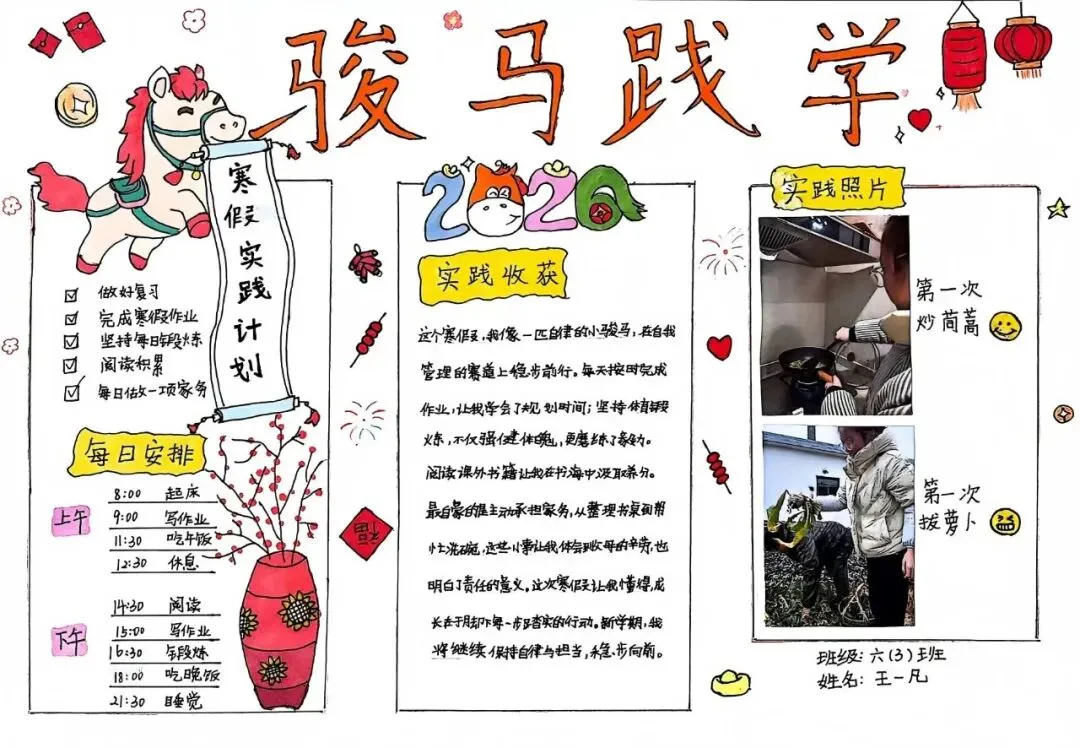 骏马践学
寒假实践计划
做好复习
完成寒假作业
坚持每日锻炼
阅读积累
每日做一项家务
每日安排
上午
8:00 起床
9:00 写作业
11:30 吃午饭
12:30 休息
下午
14:30 阅读
15:00 写作业
16:30 锻炼
18:00 吃晚饭
21:30 睡觉
2026
实践收获
这个寒假,我像一匹自律的小骏马,在自我
管理的赛道上稳步前行。每天按时完成
作业,让我学会了规划时间;坚持体育锻
炼,不仅强健体魄,更磨练了毅力。
阅读课外书籍让我在书海中汲取养分。
最自豪的是主动承担家务,从整理书桌到帮
忙洗碗,这些小事让我体会到父母的辛劳,也
明白了责任的意义。这次寒假让我懂得,成
长在于脚下每一步踏实的行动。新学期,我
将继续保持自律与担当,稳步向前。
福
实践照片
第一次
炒茼蒿
第一次
拔萝卜
班级:六(3)班
姓名:王一凡